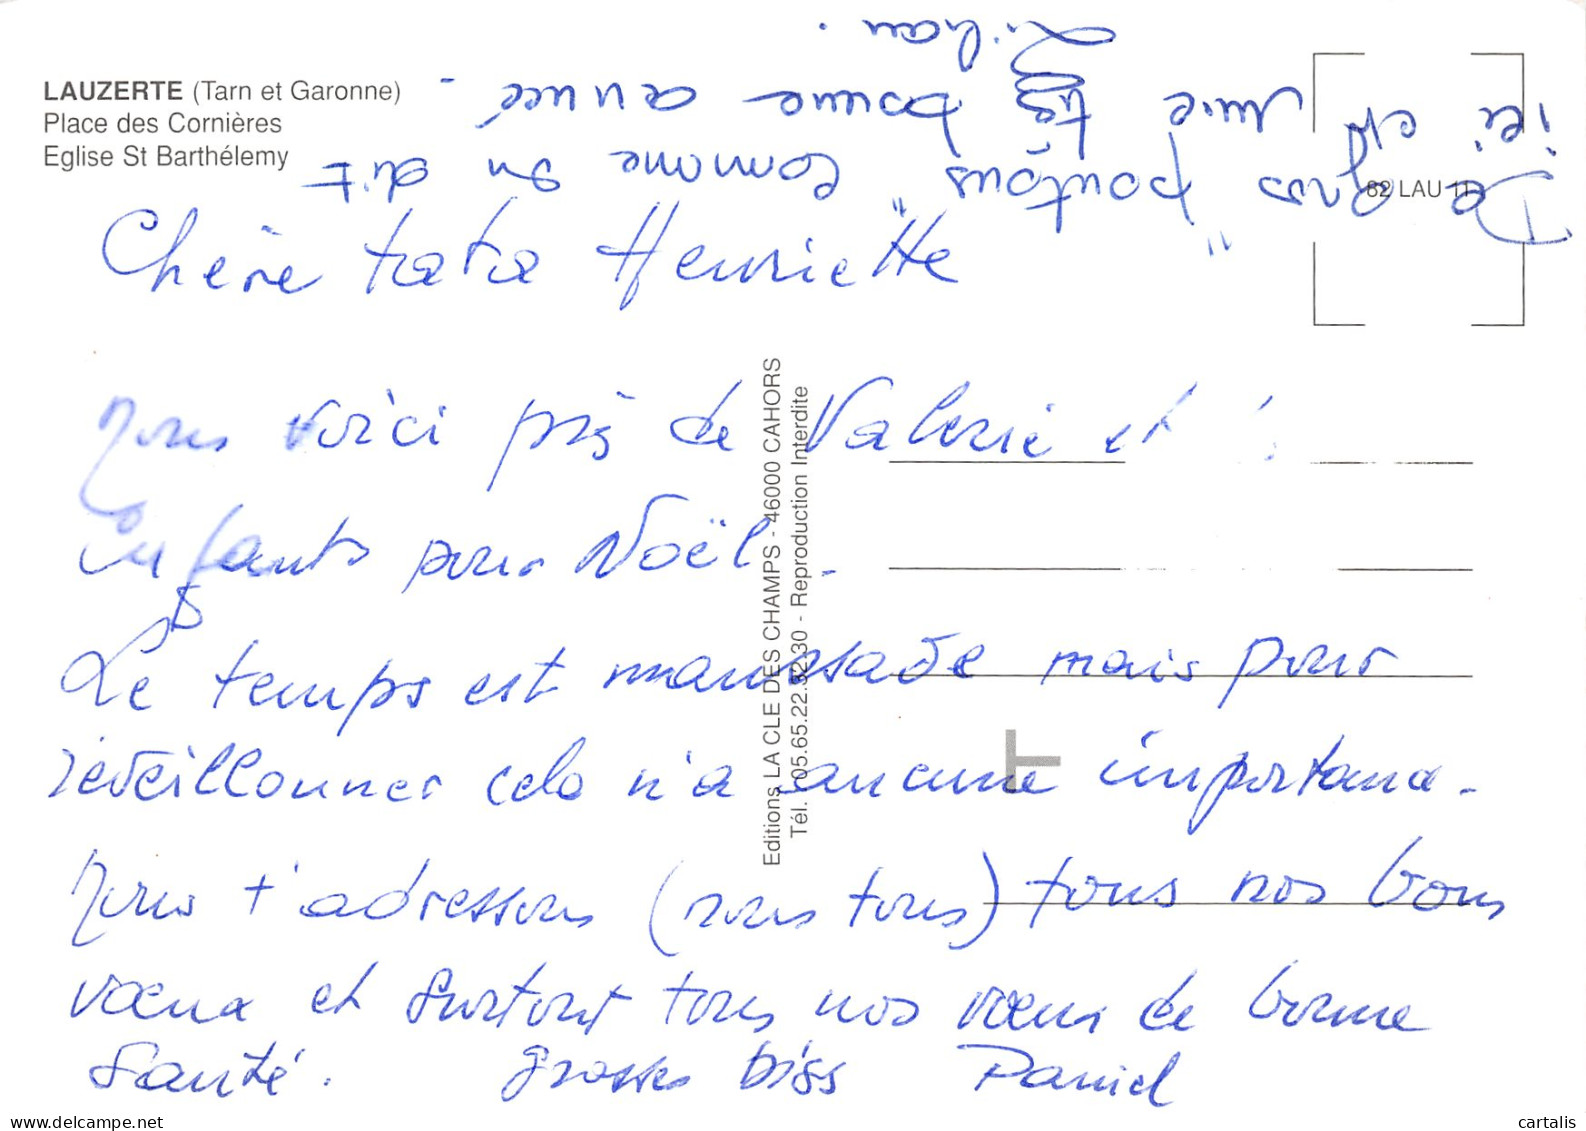 LAUZERTE (Tarn et Garonne)
Place des Cornières
Eglise St Barthélemy
82 LAU 11
Chère tata Henriette
Nous voici près de Valerie et
Enfants pour Noël.
Le temps est maussade mais pour
réveillonner cela n'a aucune importance.
Nous t'adressons (nous tous) tous nos bons
vœux et surtout tous nos vœux de bonne
Santé. grosses biss Daniel
De gros "poutous" comme on dit
ici et une très bonne année.
Lilian.
Editions LA CLE DES CHAMPS - 46000 CAHORS
Tél. 05.65.22.32.30 - Reproduction Interdite
cartalis